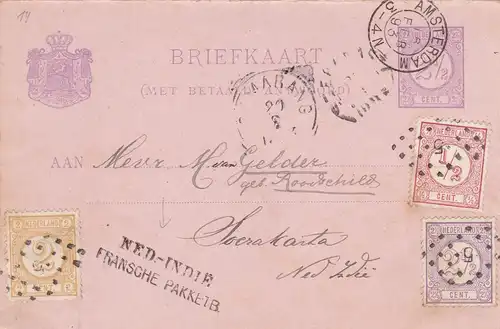 14
BRIEFKAART
(MET BETAALD ANTWOORD)
AMSTERDAM
FEB
93
3-4N
2½
CENT.
AAN Mevr. M van Gelder
geb Roodschild
Soerakarta
Ned Indië
NED-INDIE
FRANSCHE PAKKETB.
NEDERLAND
½
CENT.
NEDERLAND
2
5
CENT.
NEDERLAND
2½
5
CENT.